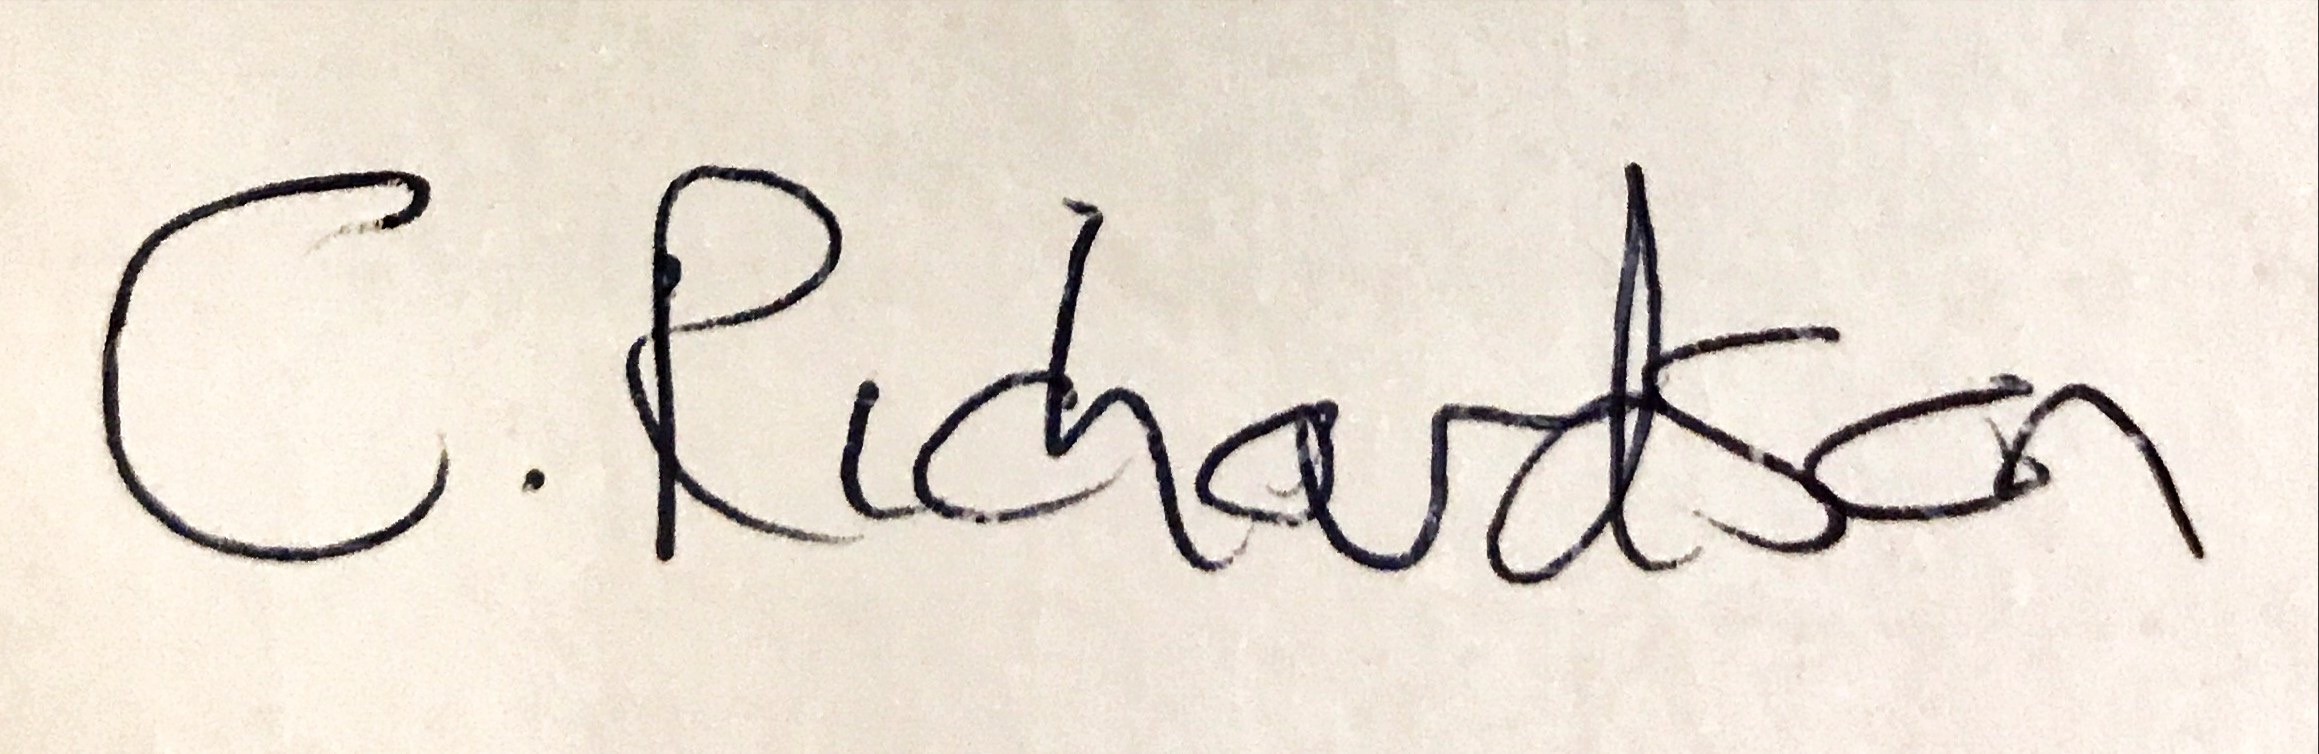 C. Richardson